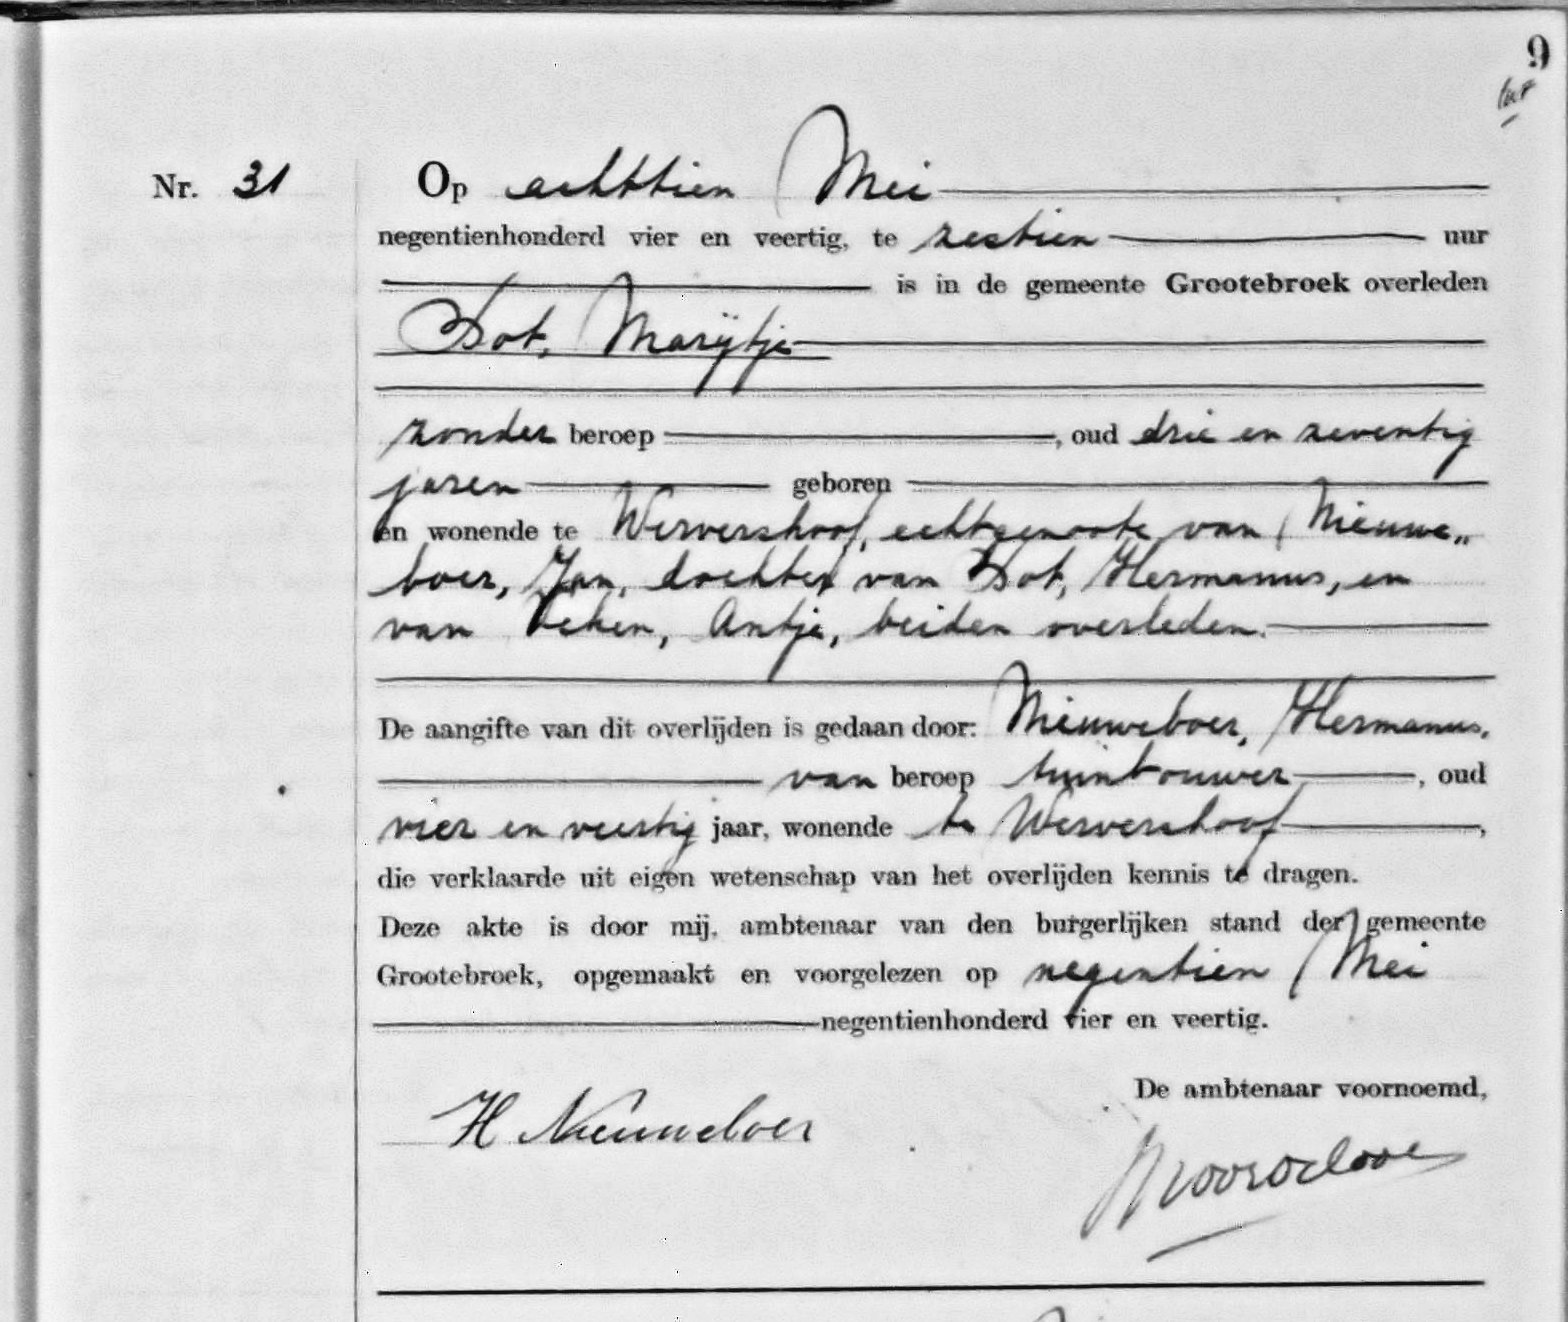 9
Nr. 31
Op achttien Mei
negentienhonderd vier en veertig, te zestien uur
is in de gemeente Grootebroek overleden
Bot, Marijtje
zonder beroep , oud drie en zeventig
jaren geboren
en wonende te Wervershoof, echtgenoote van Nieuwe„
boer, Jan, dochter van Bot, Hermanus, en
van Beken, Antje, beiden overleden.
De aangifte van dit overlijden is gedaan door: Nieuweboer, Hermanus,
van beroep tuinbouwer , oud
vier en veertig jaar, wonende te Wervershoof ,
die verklaarde uit eigen wetenschap van het overlijden kennis te dragen.
Deze akte is door mij, ambtenaar van den burgerlijken stand der gemeente
Grootebroek, opgemaakt en voorgelezen op negentien Mei
negentienhonderd vier en veertig.
De ambtenaar voornoemd,
H Nieuweboer